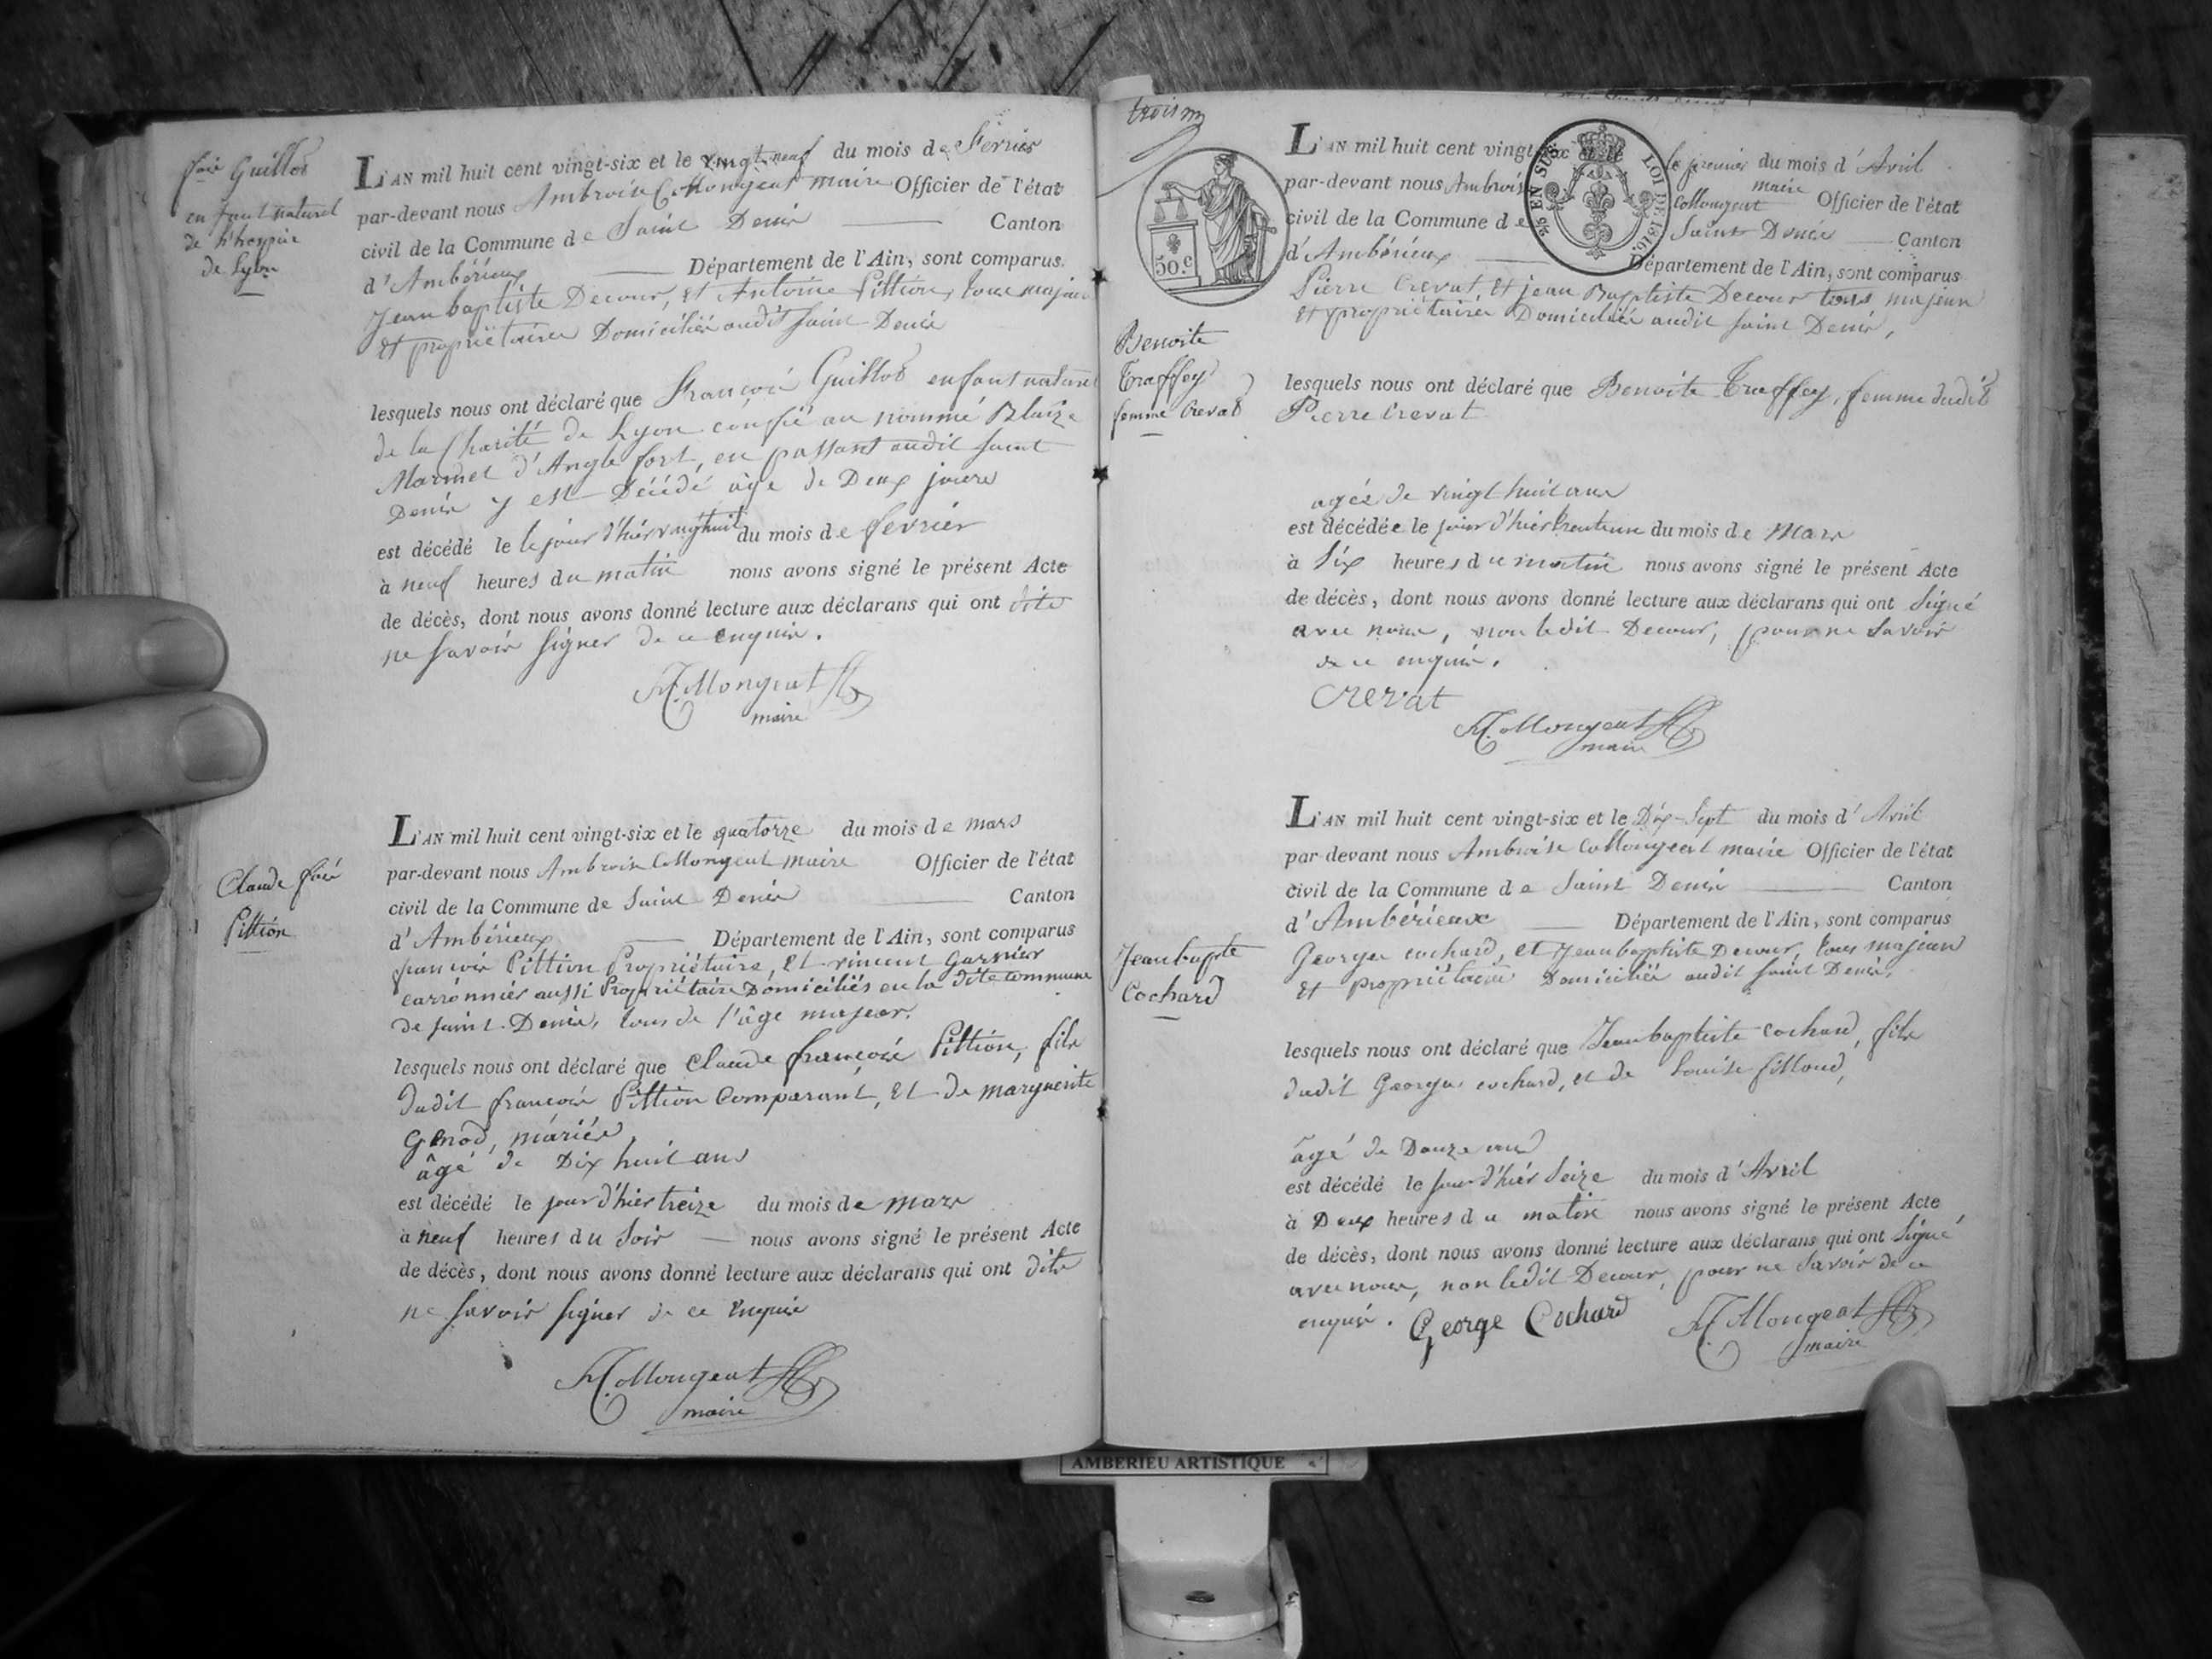 fois Guillot
enfant naturel
de l'hospice
de Lyon
L'AN mil huit cent vingt-six et le vingt-neuf du mois de Fevrier
par-devant nous Ambroise Collongeat maire Officier de l'état
civil de la Commune de Saint Denis Canton
d'Ambérieux Département de l'Ain, sont comparus
Jean baptiste Decour, et Antoine Pittion, tous majeurs
et propriétaires Domiciliés audit Saint-Denis
lesquels nous ont déclaré que François Guillot enfant naturel
de la Charité de Lyon confié au nommé Blaize
Marmet d'Anglefort, en passant audit Saint
Denis y est Décédé âgé de Deux jours
est décédé le le jour d'hier vingthuit du mois de fevrier
à neuf heures du matin nous avons signé le présent Acte
de décès, dont nous avons donné lecture aux déclarans qui ont dits
ne savoir signer de ce enquis.
A. Collongeat
maire
Claude fois
Pittion
L'AN mil huit cent vingt-six et le quatorze du mois de mars
par-devant nous Ambroise Collongeat maire Officier de l'état
civil de la Commune de Saint Denis Canton
d'Ambérieux Département de l'Ain, sont comparus
françois Pittion Propriétaire, et vincent Garnier
carronnier aussi Propriétaire Domiciliés en la dite commune
de Saint-Denis, tous de l'âge majeur.
lesquels nous ont déclaré que Claude françois Pittion, fils
dudit françois Pittion Comparant, et de marguerite
Genod, mariés
âgé de Dix huit ans
est décédé le jour d'hier treize du mois de mars
à neuf heures du Soir nous avons signé le présent Acte
de décès, dont nous avons donné lecture aux déclarans qui ont dits
ne savoir signer de ce Enquis
A. Collongeat
maire
trois
50.c
EN SUS
LOI DE 1816.
Benoite
Traffey
femme Crevat
L'AN mil huit cent vingt-six et le le premier du mois d'Avril
par-devant nous Ambroise Collongeat maire Officier de l'état
civil de la Commune de Saint Denis Canton
d'Ambérieux Département de l'Ain, sont comparus
Pierre Crevat, et jean Baptiste Decour tous majeurs
et propriétaires Domiciliés audit Saint Denis,
lesquels nous ont déclaré que Benoite Traffey, femme dudit
Pierre Crevat
agée de vingt huit ans
est décédée le jour d'hier trenteun du mois de Mars
à Six heures du matin nous avons signé le présent Acte
de décès, dont nous avons donné lecture aux déclarans qui ont Signé
avec nous, non ledit Decour, pour ne Savoir
de ce enquis.
Crevat
A. Collongeat
maire
Jean bapte
Cochard
L'AN mil huit cent vingt-six et le Dix-Sept du mois d'Avril
par-devant nous Ambroise Collongeat maire Officier de l'état
civil de la Commune de Saint Denis Canton
d'Ambérieux Département de l'Ain, sont comparus
Georges cochard, et Jean baptiste Decour, tous majeurs
et propriétaires Domiciliés audit Saint Denis,
lesquels nous ont déclaré que Jean baptiste cochard, fils
dudit Georges cochard, et de Louise fillioud,
âgé de Douze ans
est décédé le jour d'hier Seize du mois d'Avril
à Deux heures du matin nous avons signé le présent Acte
de décès, dont nous avons donné lecture aux déclarans qui ont Signé
avec nous, non ledit Decour, pour ne Savoir de ce
enquis. George Cochard A. Collongeat
maire
AMBERIEU ARTISTIQUE